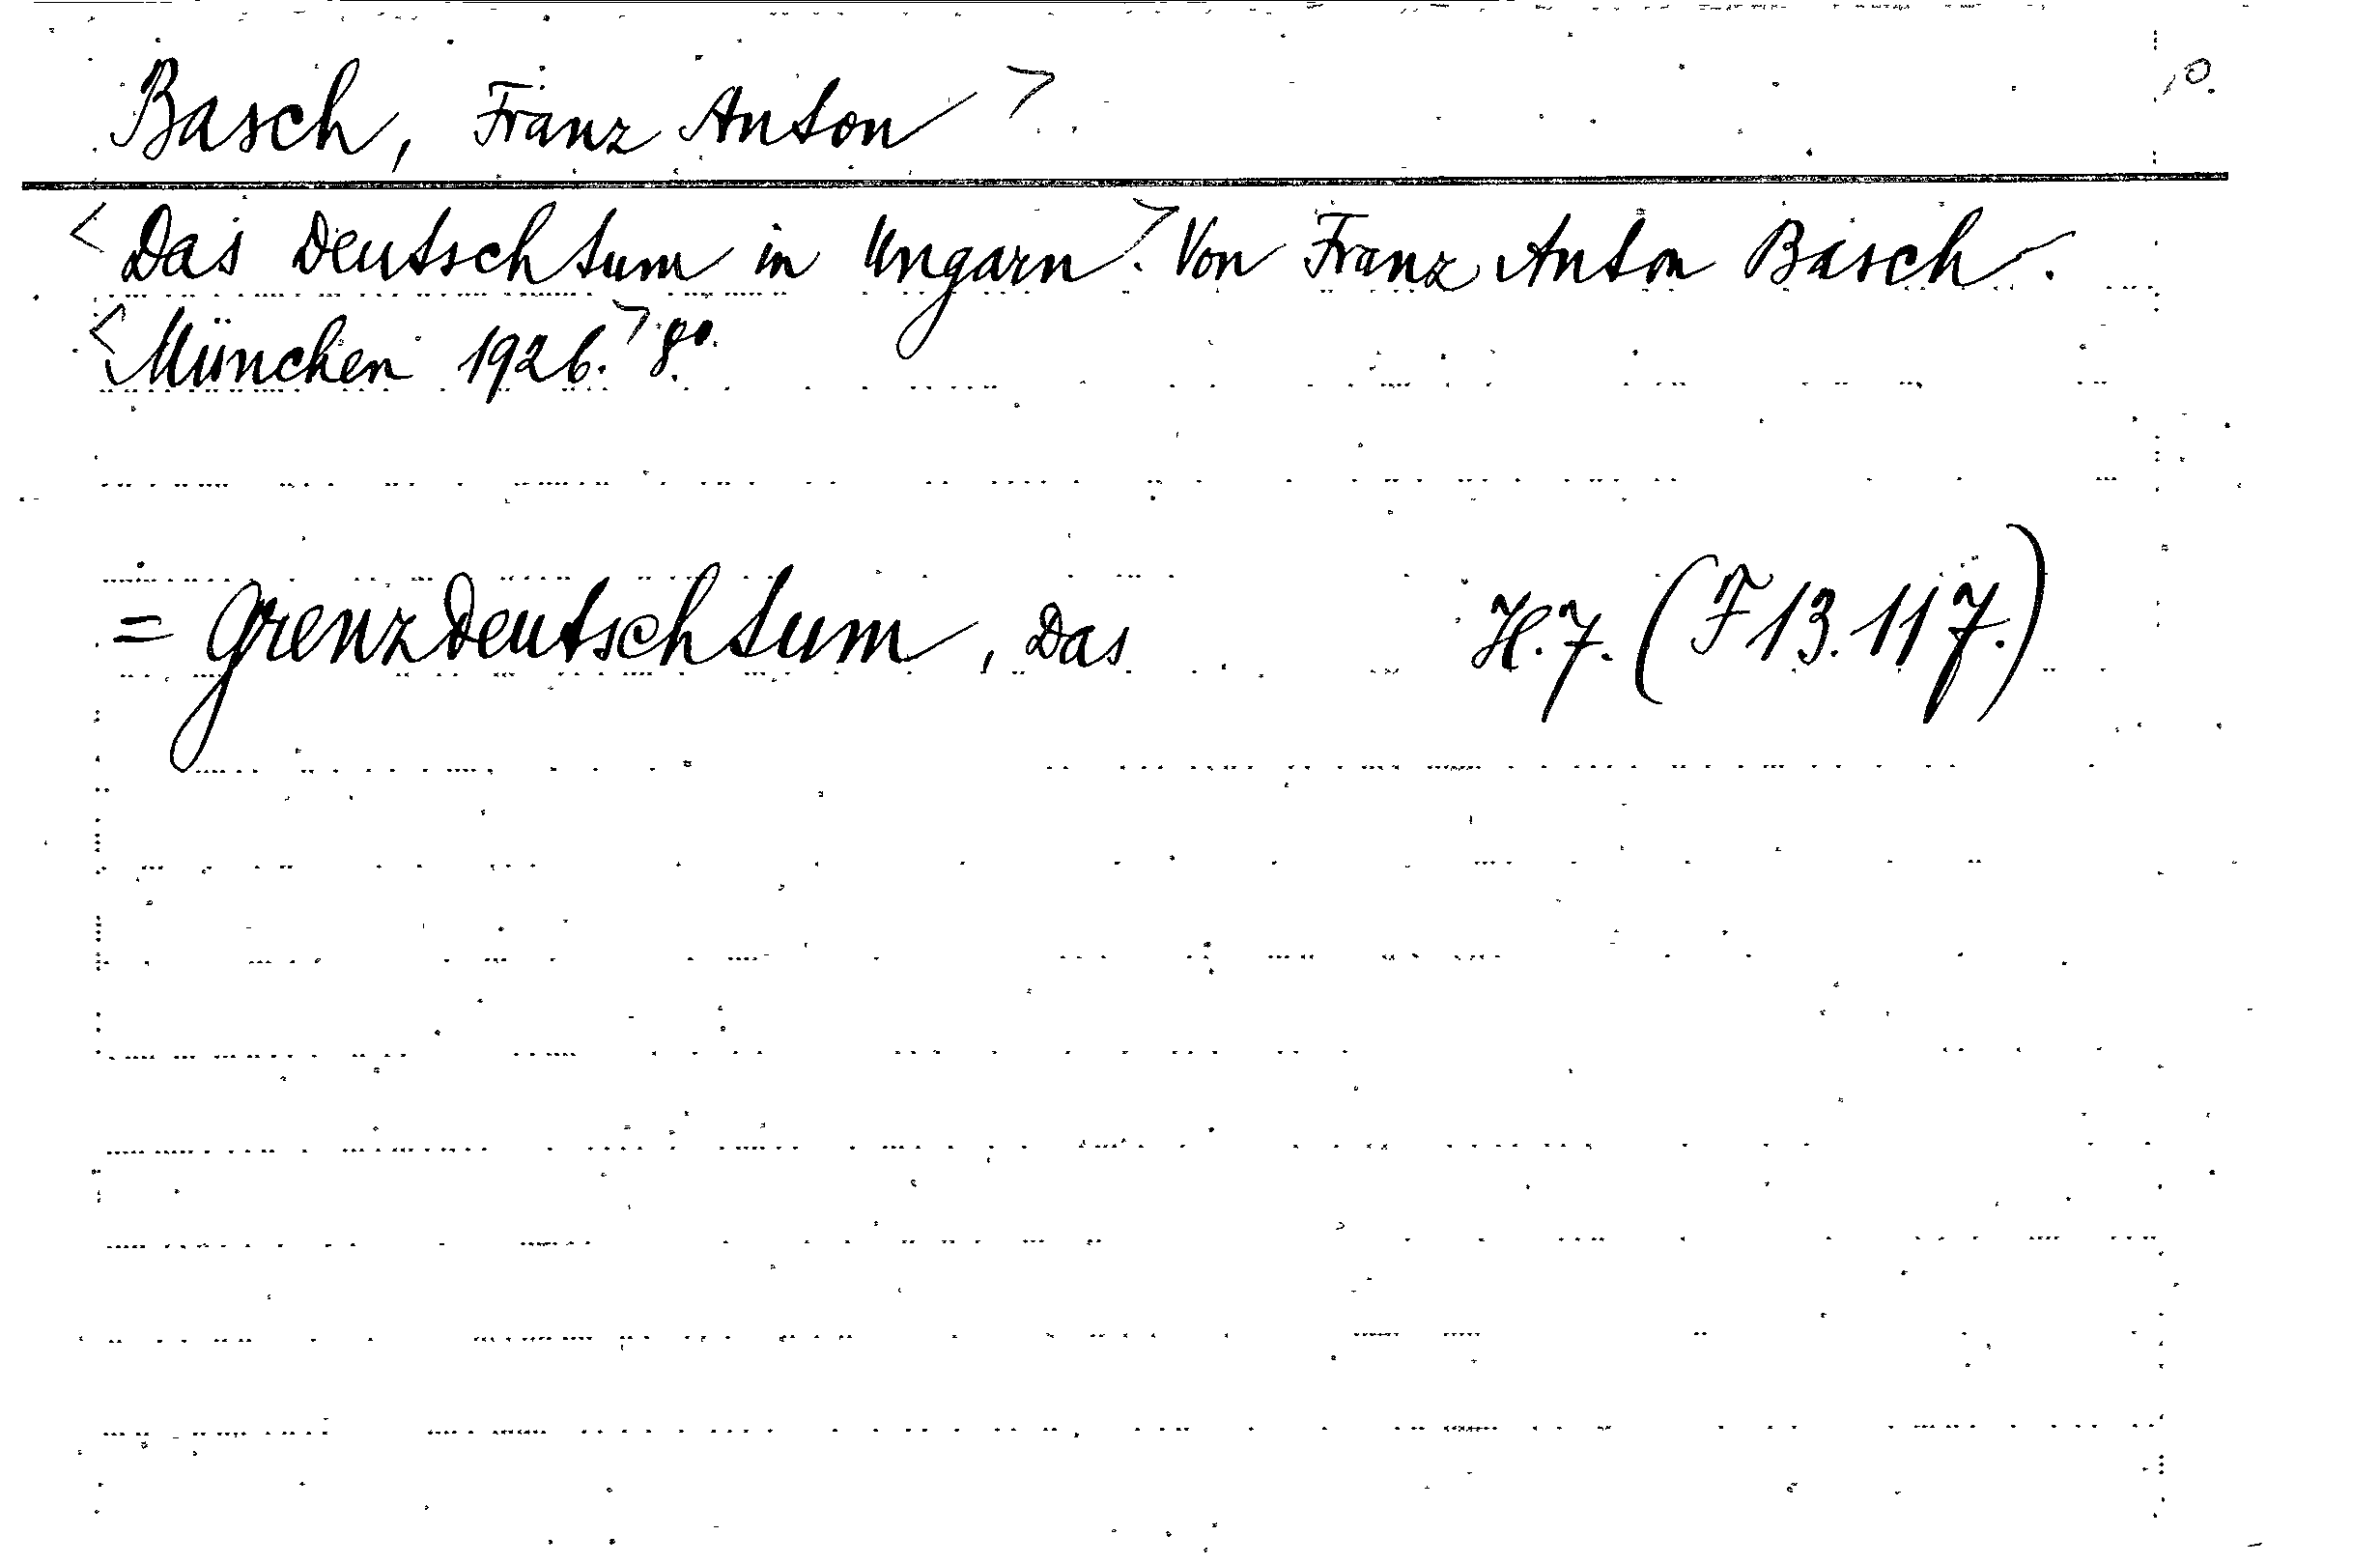 Basch, Franz Anton >
< Das Deutschtum in Ungarn.> Von Franz Anton Basch.
< München 1926.> 8º.
= Grenzdeutschtum, Das H. 7. (F 13. 117.)